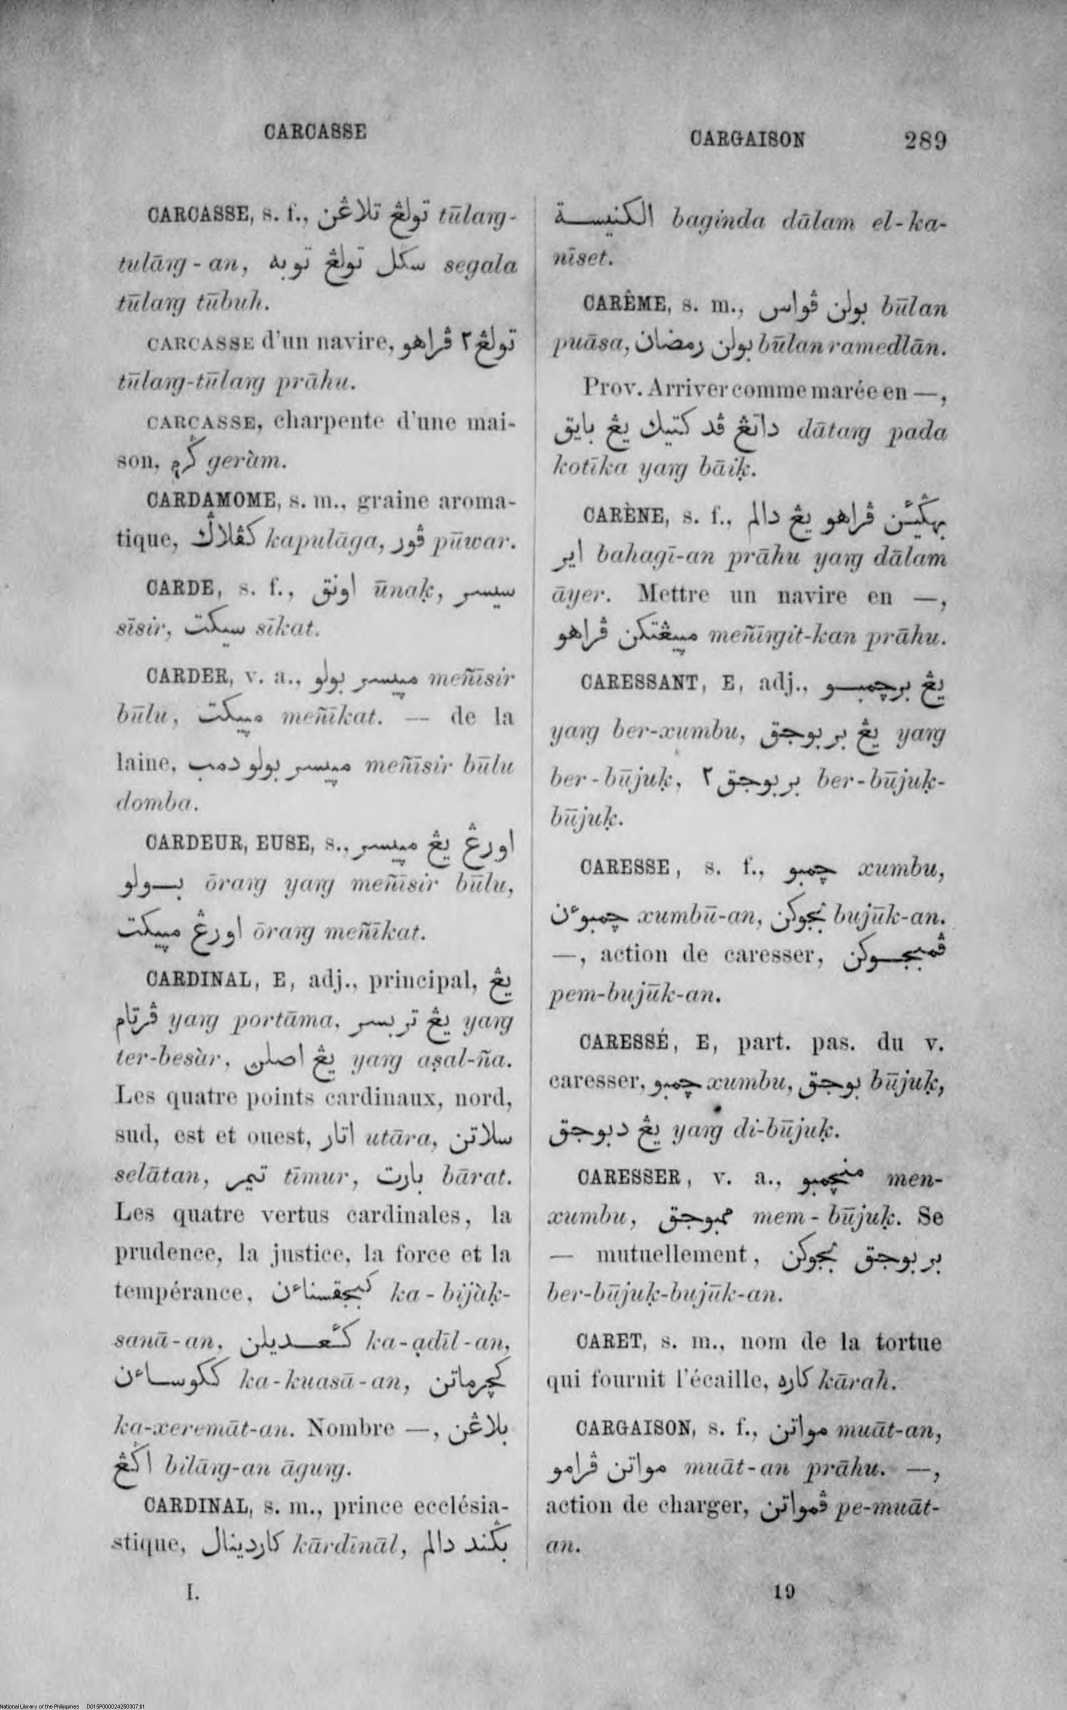 CARCASSE
CARGAISON 289
CARCASSE, s. f., تولڠ تلاڠن tūlarg-
tulārg-an, سݢل تولڠ توبه segala
tūlarg tūbuh.
CARCASSE d'un navire, تولڠ٢ ڤراهو
tūlarg-tūlarg prāhu.
CARCASSE, charpente d'une mai-
son, ݢرم geràm.
CARDAMOME, s. m., graine aroma-
tique, کڤلاݢ kapulāga, ڤور pūwar.
CARDE, s. f., اونق ūnaḳ, سيسر
sīsir, سيکت sīkat.
CARDER, v. a., ميسر بولو meñīsir
būlu, ميکت meñīkat. — de la
laine, ميسر بولو دمب meñīsir būlu
domba.
CARDEUR, EUSE, s., اورڠ يڠ ميسر
بولو ōrarg yarg meñīsir būlu,
اورڠ ميکت ōrarg meñīkat.
CARDINAL, E, adj., principal, يڠ
ڤرتام yarg portāma, يڠ تربسر yarg
ter-besàr, يڠ اصلن yarg aṣal-ña.
Les quatre points cardinaux, nord,
sud, est et ouest, اتار utāra, سلاتن
selātan, تيمر tīmur, بارت bārat.
Les quatre vertus cardinales, la
prudence, la justice, la force et la
tempérance, کبجقسناءن ka-bijàḳ-
sanā-an, کعديلن ka-ạdīl-an,
ککوساءن ka-kuasā-an, کچرماتن
ka-xeremāt-an. Nombre —, بلاڠن
اݢڠ bilārg-an āgurg.
CARDINAL, s. m., prince ecclésia-
stique, کاردينال kārdīnāl, بݢند دالم
I.
الکنيسة baginda dālam el-ka-
nīset.
CARÊME, s. m., بولن ڤواس būlan
puāsa, بولن رمضان būlan ramedlān.
Prov. Arriver comme marée en —,
داتڠ ڤد کتيک يڠ بايق dātarg pada
kotīka yarg bāiḳ.
CARÈNE, s. f., بهݢيئن ڤراهو يڠ دالم
اير bahagī-an prāhu yarg dālam
āyer. Mettre un navire en —,
ميڠتکن ڤراهو meñīrgit-kan prāhu.
CARESSANT, E, adj., يڠ برچمبو
yarg ber-xumbu, يڠ بربوجق yarg
ber-būjuḳ, بربوجق٢ ber-būjuḳ-
būjuḳ.
CARESSE, s. f., چمبو xumbu,
چمبوءن xumbū-an, بجوکن bujūk-an.
—, action de caresser, ڤمبجوکن
pem-bujūk-an.
CARESSÉ, E, part. pas. du v.
caresser, چمبو xumbu, بوجق būjuḳ,
يڠ دبوجق yarg di-būjuḳ.
CARESSER, v. a., منچمبو men-
xumbu, ممبوجق mem-būjuḳ. Se
— mutuellement, بربوجق بجوکن
ber-būjuḳ-bujūk-an.
CARET, s. m., nom de la tortue
qui fournit l'écaille, کاره kārah.
CARGAISON, s. f., مواتن muāt-an,
مواتن ڤرامو muāt-an prāhu. —,
action de charger, ڤمواتن pe-muāt-
an.
19
National Library of the Philippines